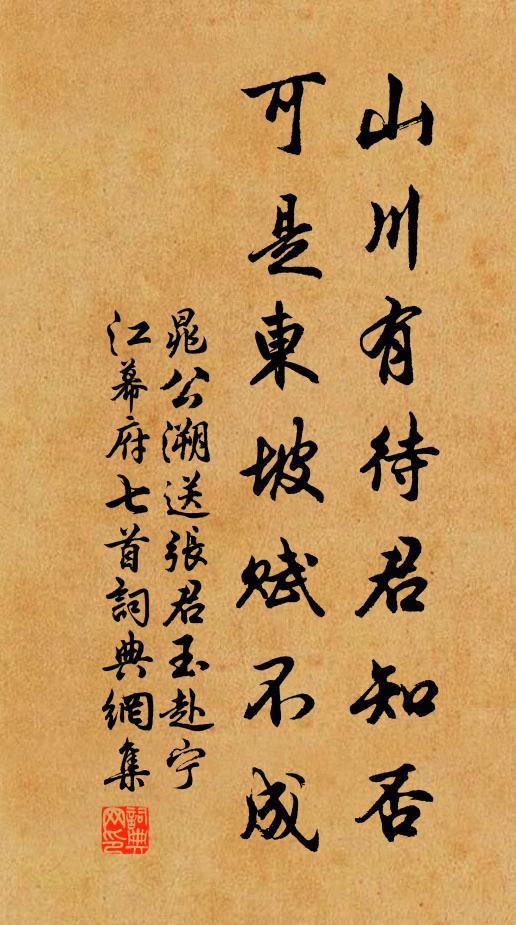 山川有待君知否
可是東坡賦不成
晁公溯送張君玉赴宁
江幕府七首詞典網集
詞典网印